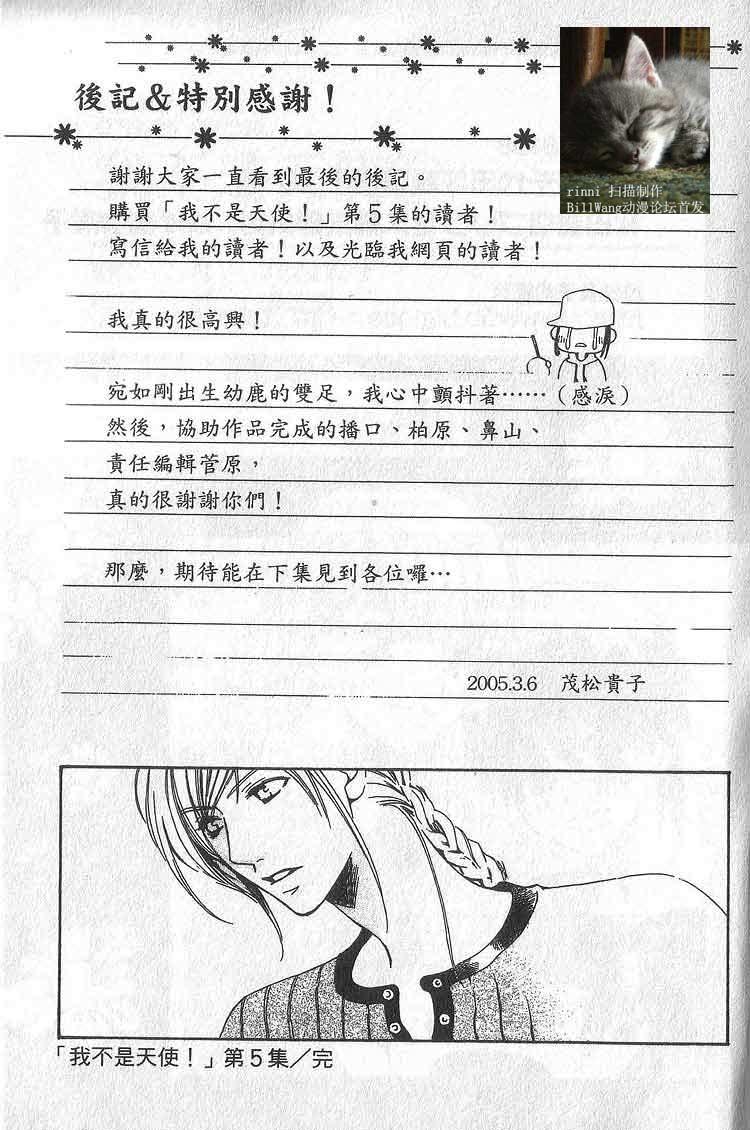 後記&特別感謝！
rinni 扫描制作
BillWang动漫论坛首发
謝謝大家一直看到最後的後記。
購買「我不是天使！」第5集的讀者！
寫信給我的讀者！以及光臨我網頁的讀者！
我真的很高興！
宛如剛出生幼鹿的雙足，我心中顫抖著……（感淚）
然後，協助作品完成的播口、柏原、鼻山、
責任編輯菅原，
真的很謝謝你們！
那麼，期待能在下集見到各位囉…
2005.3.6 茂松貴子
「我不是天使！」第5集／完